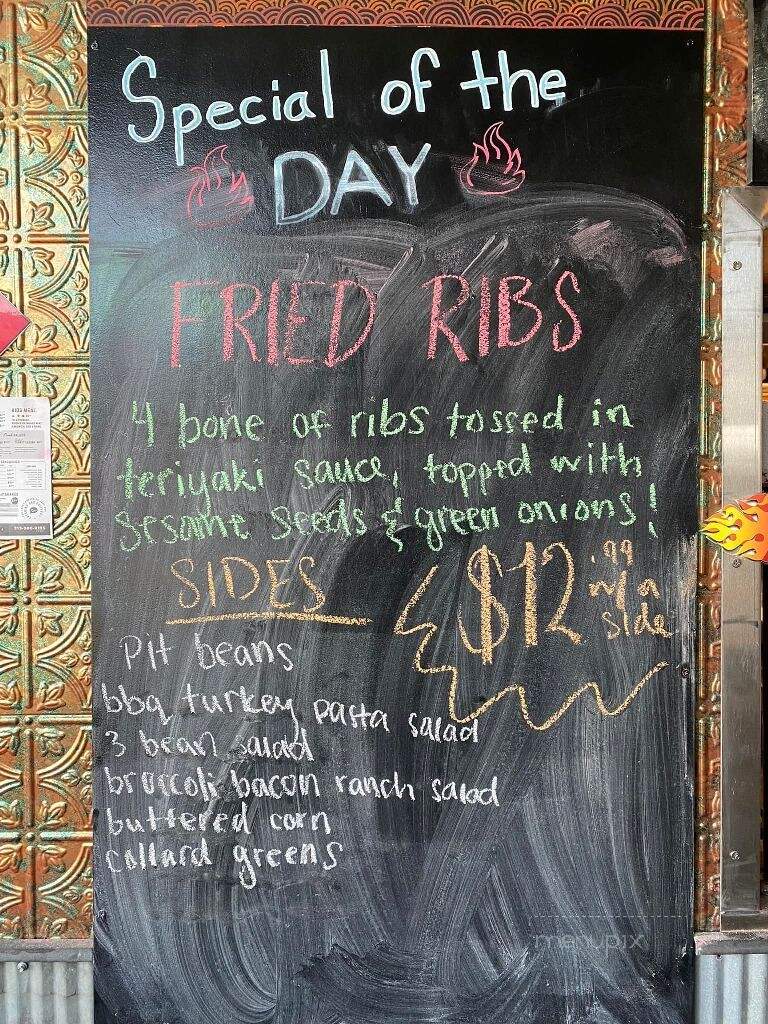 Special of the
DAY
FRIED RIBS
4 bone of ribs tossed in
teriyaki sauce, topped with
sesame seeds & green onions!
SIDES
$12.99
w/a
side
Pit beans
bbq turkey pasta salad
3 bean salad
broccoli bacon ranch salad
buttered corn
collard greens
RIBS MEAL
menupix